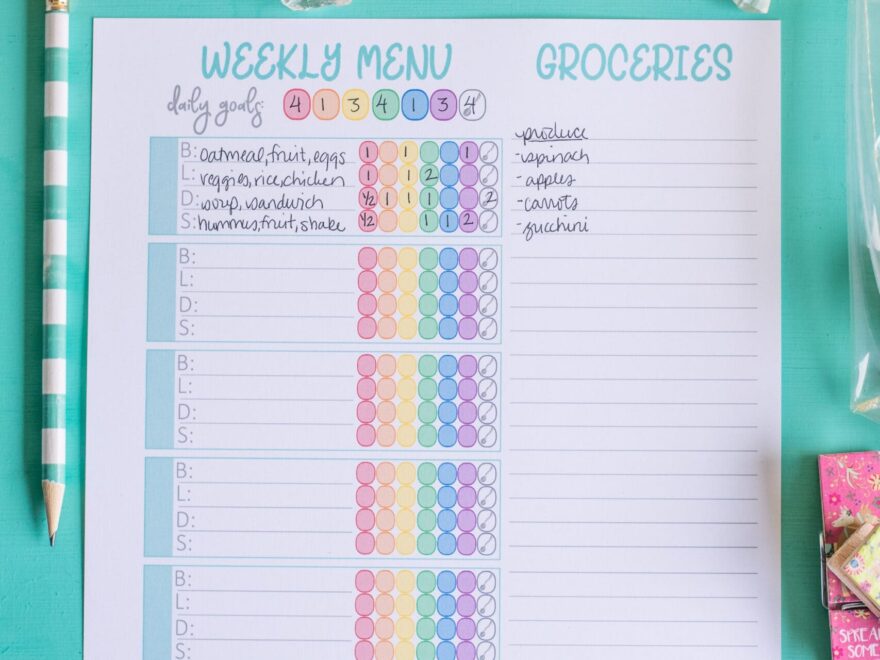 WEEKLY MENU
daily goals: 4 1 3 4 1 3 4
B: oatmeal, fruit, eggs 1 1 1
L: veggies, rice, chicken 1 1 2
D: soup, sandwich 1/2 1 1 1 2
S: hummus, fruit, shake 1/2 1 1 2
B:
L:
D:
S:
B:
L:
D:
S:
B:
L:
D:
S:
B:
L:
D:
S:
GROCERIES
produce
-spinach
-apples
-carrots
-zucchini
SOME